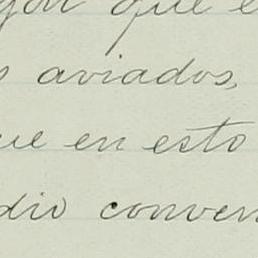 que
aviados,
ue en esto
dio conven